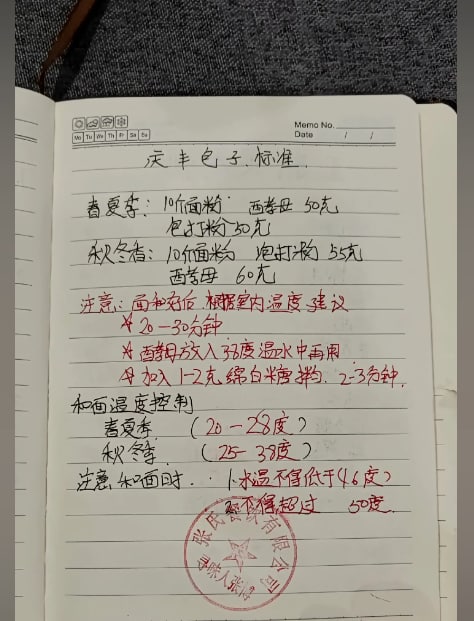 Memo No.
Mo Tu We Th Fr Sa Su
Date / /
庆丰包子.标准.
春夏季：10斤面粉 酉孝母 50克
泡打粉50克
秋冬春：10斤面粉 泡打粉 55克
酉孝母 60克
注意：面和好后.根据室内温度建议
* 20—30分钟
* 酵母放入38度温水中再用
加入1-2克绵白糖 2-3分钟.
和面温度控制
春夏季 （20—28度）
秋冬季 （25—38度）
注意 和面时.. 1.水温不得低于46度）
2.不得超过 50度.
张氏 有限公司